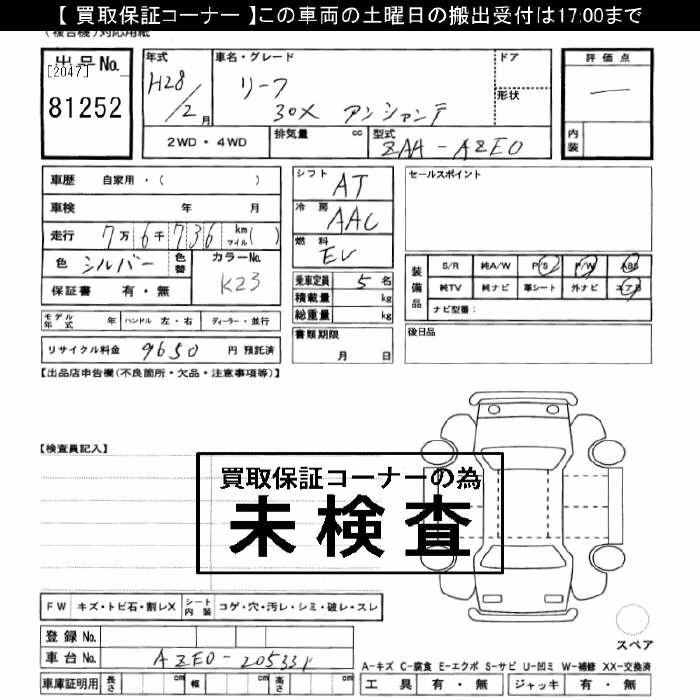 【 買取保証コーナー 】この車両の土曜日の搬出受付は17:00まで
(複合機)対応用紙
出品No.
[2047]
81252
年式
H28/2月
車名・グレード
リーフ
30X アンシャンテ
ドア
形状
評価点
―
内装
2WD・4WD
排気量 cc
型式
ZAA-AZE0
車歴 自家用・( )
車検 年 月
走行 7万6千736 km マイル( )
色 シルバー 色替
カラーNo.
K23
保証書 有・無
シフト AT
冷房 AAC
燃料 EV
乗車定員 5名
積載量 kg
総重量 kg
セールスポイント
装備品
S/R 純A/W P/S P/W ABS
純TV 純ナビ 革シート 外ナビ エアB
ナビ型番:
モデル年式 年 ハンドル 左・右 ディーラー・並行
書類期限
月 日
後日品
リサイクル料金 9650 円 預託済
【出品店申告欄(不良箇所・欠品・注意事項等)】
【検査員記入】
買取保証コーナーの為
未検査
FW キズ・トビ石・割レX シート内装 コゲ・穴・汚レ・シミ・破レ・スレ
登録No.
車台No. AZE0-205331
車庫証明用 長さ cm 幅 cm 高さ cm
スペア
A-キズ C-腐食 E-エクボ S-サビ U-凹ミ W-補修 XX-交換済
工具 有・無 ジャッキ 有・無